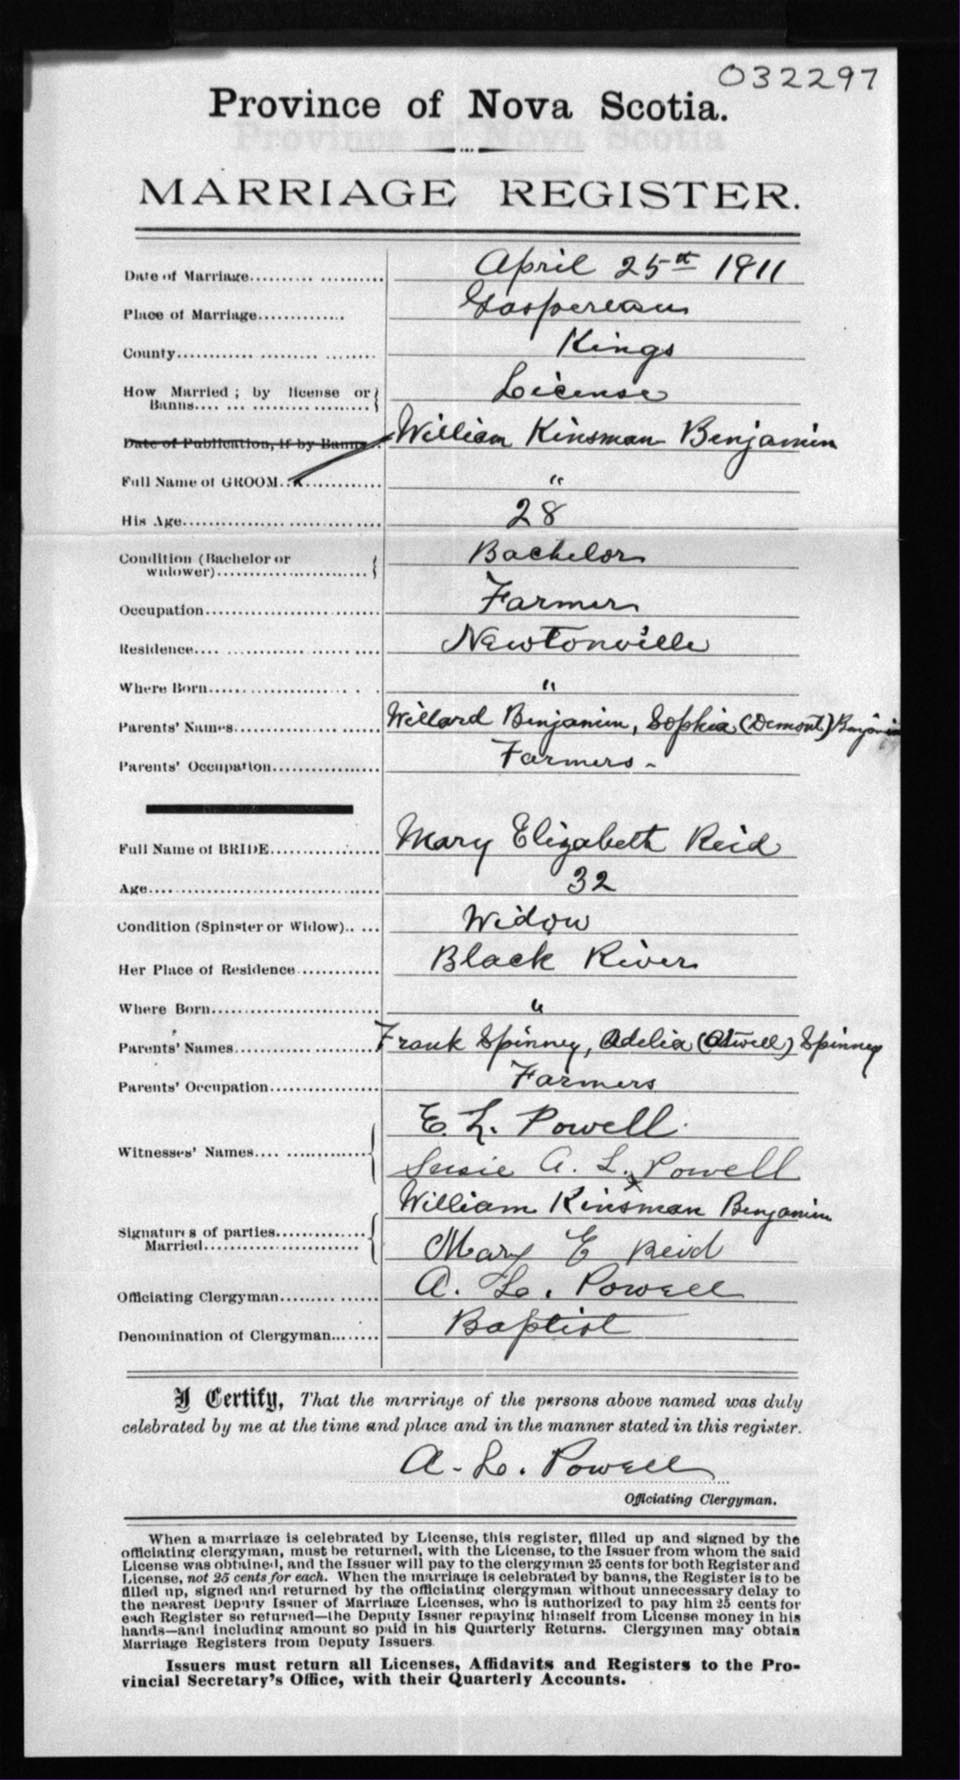 032297
Province of Nova Scotia.
MARRIAGE REGISTER.
Date of Marriage. April 25th 1911
Place of Marriage. Gaspereau
County. Kings
How Married; by license or Banns. License
Date of Publication, if by Banns. William Kinsman Benjamin
Full Name of GROOM. "
His Age. 28
Condition (Bachelor or widower). Bachelor
Occupation. Farmer
Residence. Newtonville
Where Born. "
Parents' Names. Willard Benjamin, Sophia (Demont) Benjamin
Parents' Occupation. Farmers -
Full Name of BRIDE. Mary Elizabeth Reid
Age. 32
Condition (Spinster or Widow). Widow
Her Place of Residence. Black River
Where Born. "
Parents' Names. Frank Spinney, Adelia (Atwell) Spinney
Parents' Occupation. Farmers
Witnesses' Names. E. L. Powell
Susie A. L. Powell
Signatures of parties Married. William Kinsman Benjamin
Mary E Reid
Officiating Clergyman. A. L. Powell
Denomination of Clergyman. Baptist
I Certify, That the marriage of the persons above named was duly
celebrated by me at the time and place and in the manner stated in this register.
A. L. Powell
Officiating Clergyman.
When a marriage is celebrated by License, this register, filled up and signed by the
officiating clergyman, must be returned, with the License, to the Issuer from whom the said
License was obtained, and the Issuer will pay to the clergyman 25 cents for both Register and
License, not 25 cents for each. When the marriage is celebrated by banns, the Register is to be
filled up, signed and returned by the officiating clergyman without unnecessary delay to
the nearest Deputy Issuer of Marriage Licenses, who is authorized to pay him 25 cents for
each Register so returned—the Deputy Issuer repaying himself from License money in his
hands—and including amount so paid in his Quarterly Returns. Clergymen may obtain
Marriage Registers from Deputy Issuers.
Issuers must return all Licenses, Affidavits and Registers to the Pro-
vincial Secretary's Office, with their Quarterly Accounts.